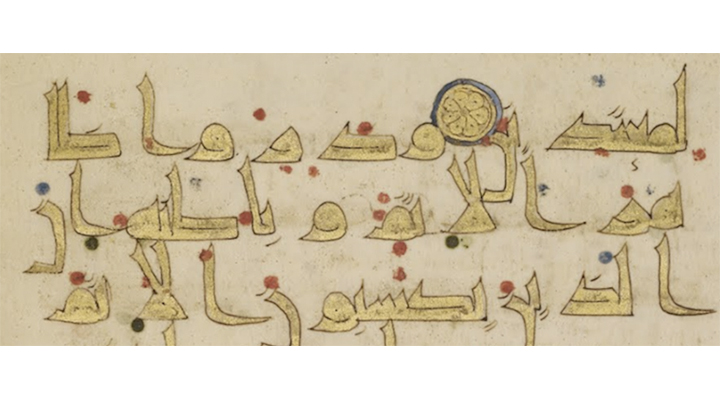 لمعتدين وذروا ظا
هر الاثم وباطنه ان
الذين يكسبون الاثم